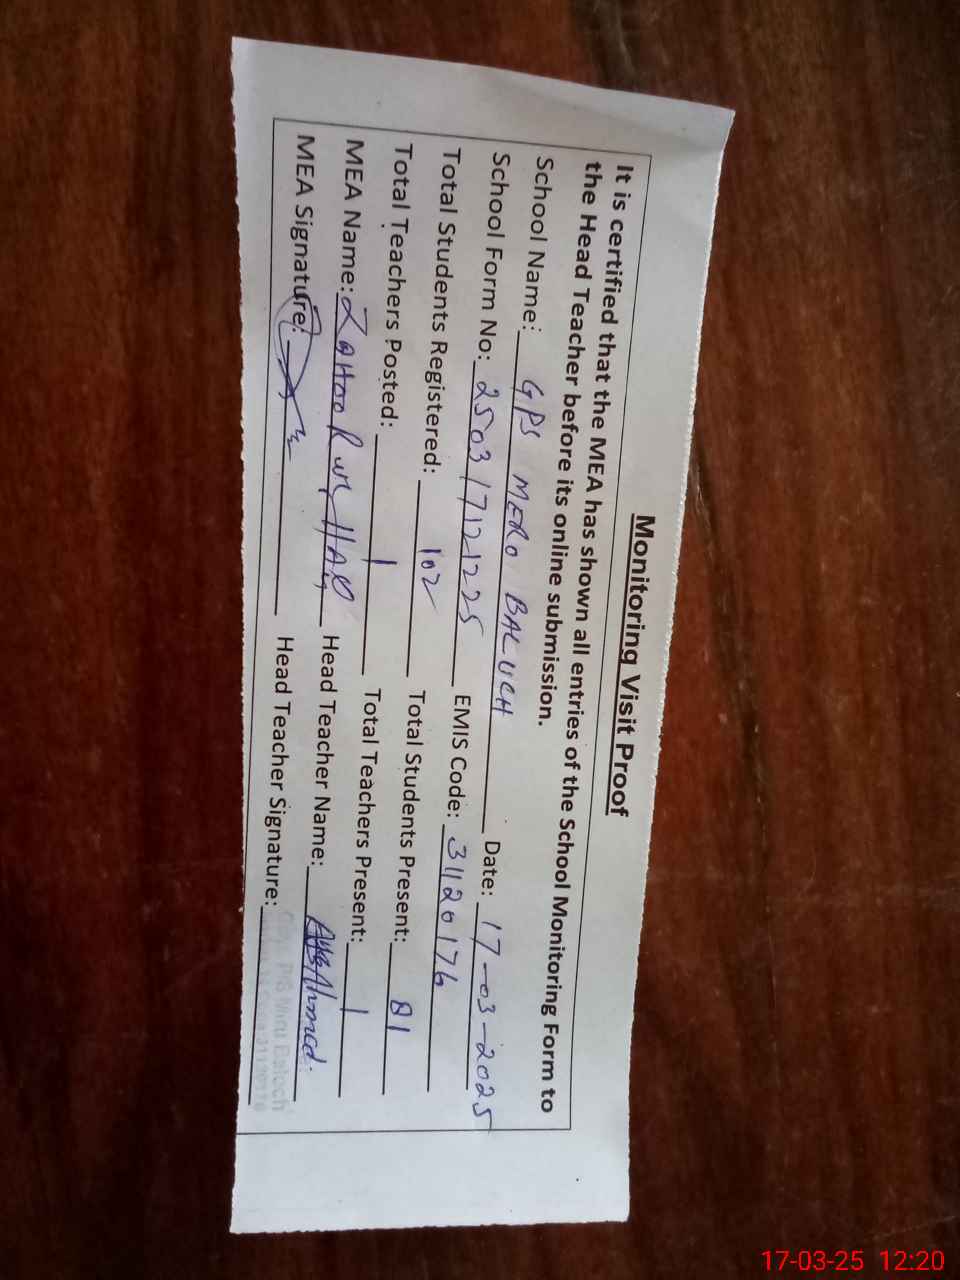 Monitoring Visit Proof
It is certified that the MEA has shown all entries of the School Monitoring Form to
the Head Teacher before its online submission.
School Name: GPS MERO BALUCH Date: 17-03-2025
School Form No: 250317121225 EMIS Code: 31120176
Total Students Registered: 102 Total Students Present: 81
Total Teachers Posted: 1 Total Teachers Present: 1
MEA Name: ZAHOOR UL HAQ Head Teacher Name: Ahmed
MEA Signature: Head Teacher Signature:
PS Miru Baloch
17-03-25 12:20